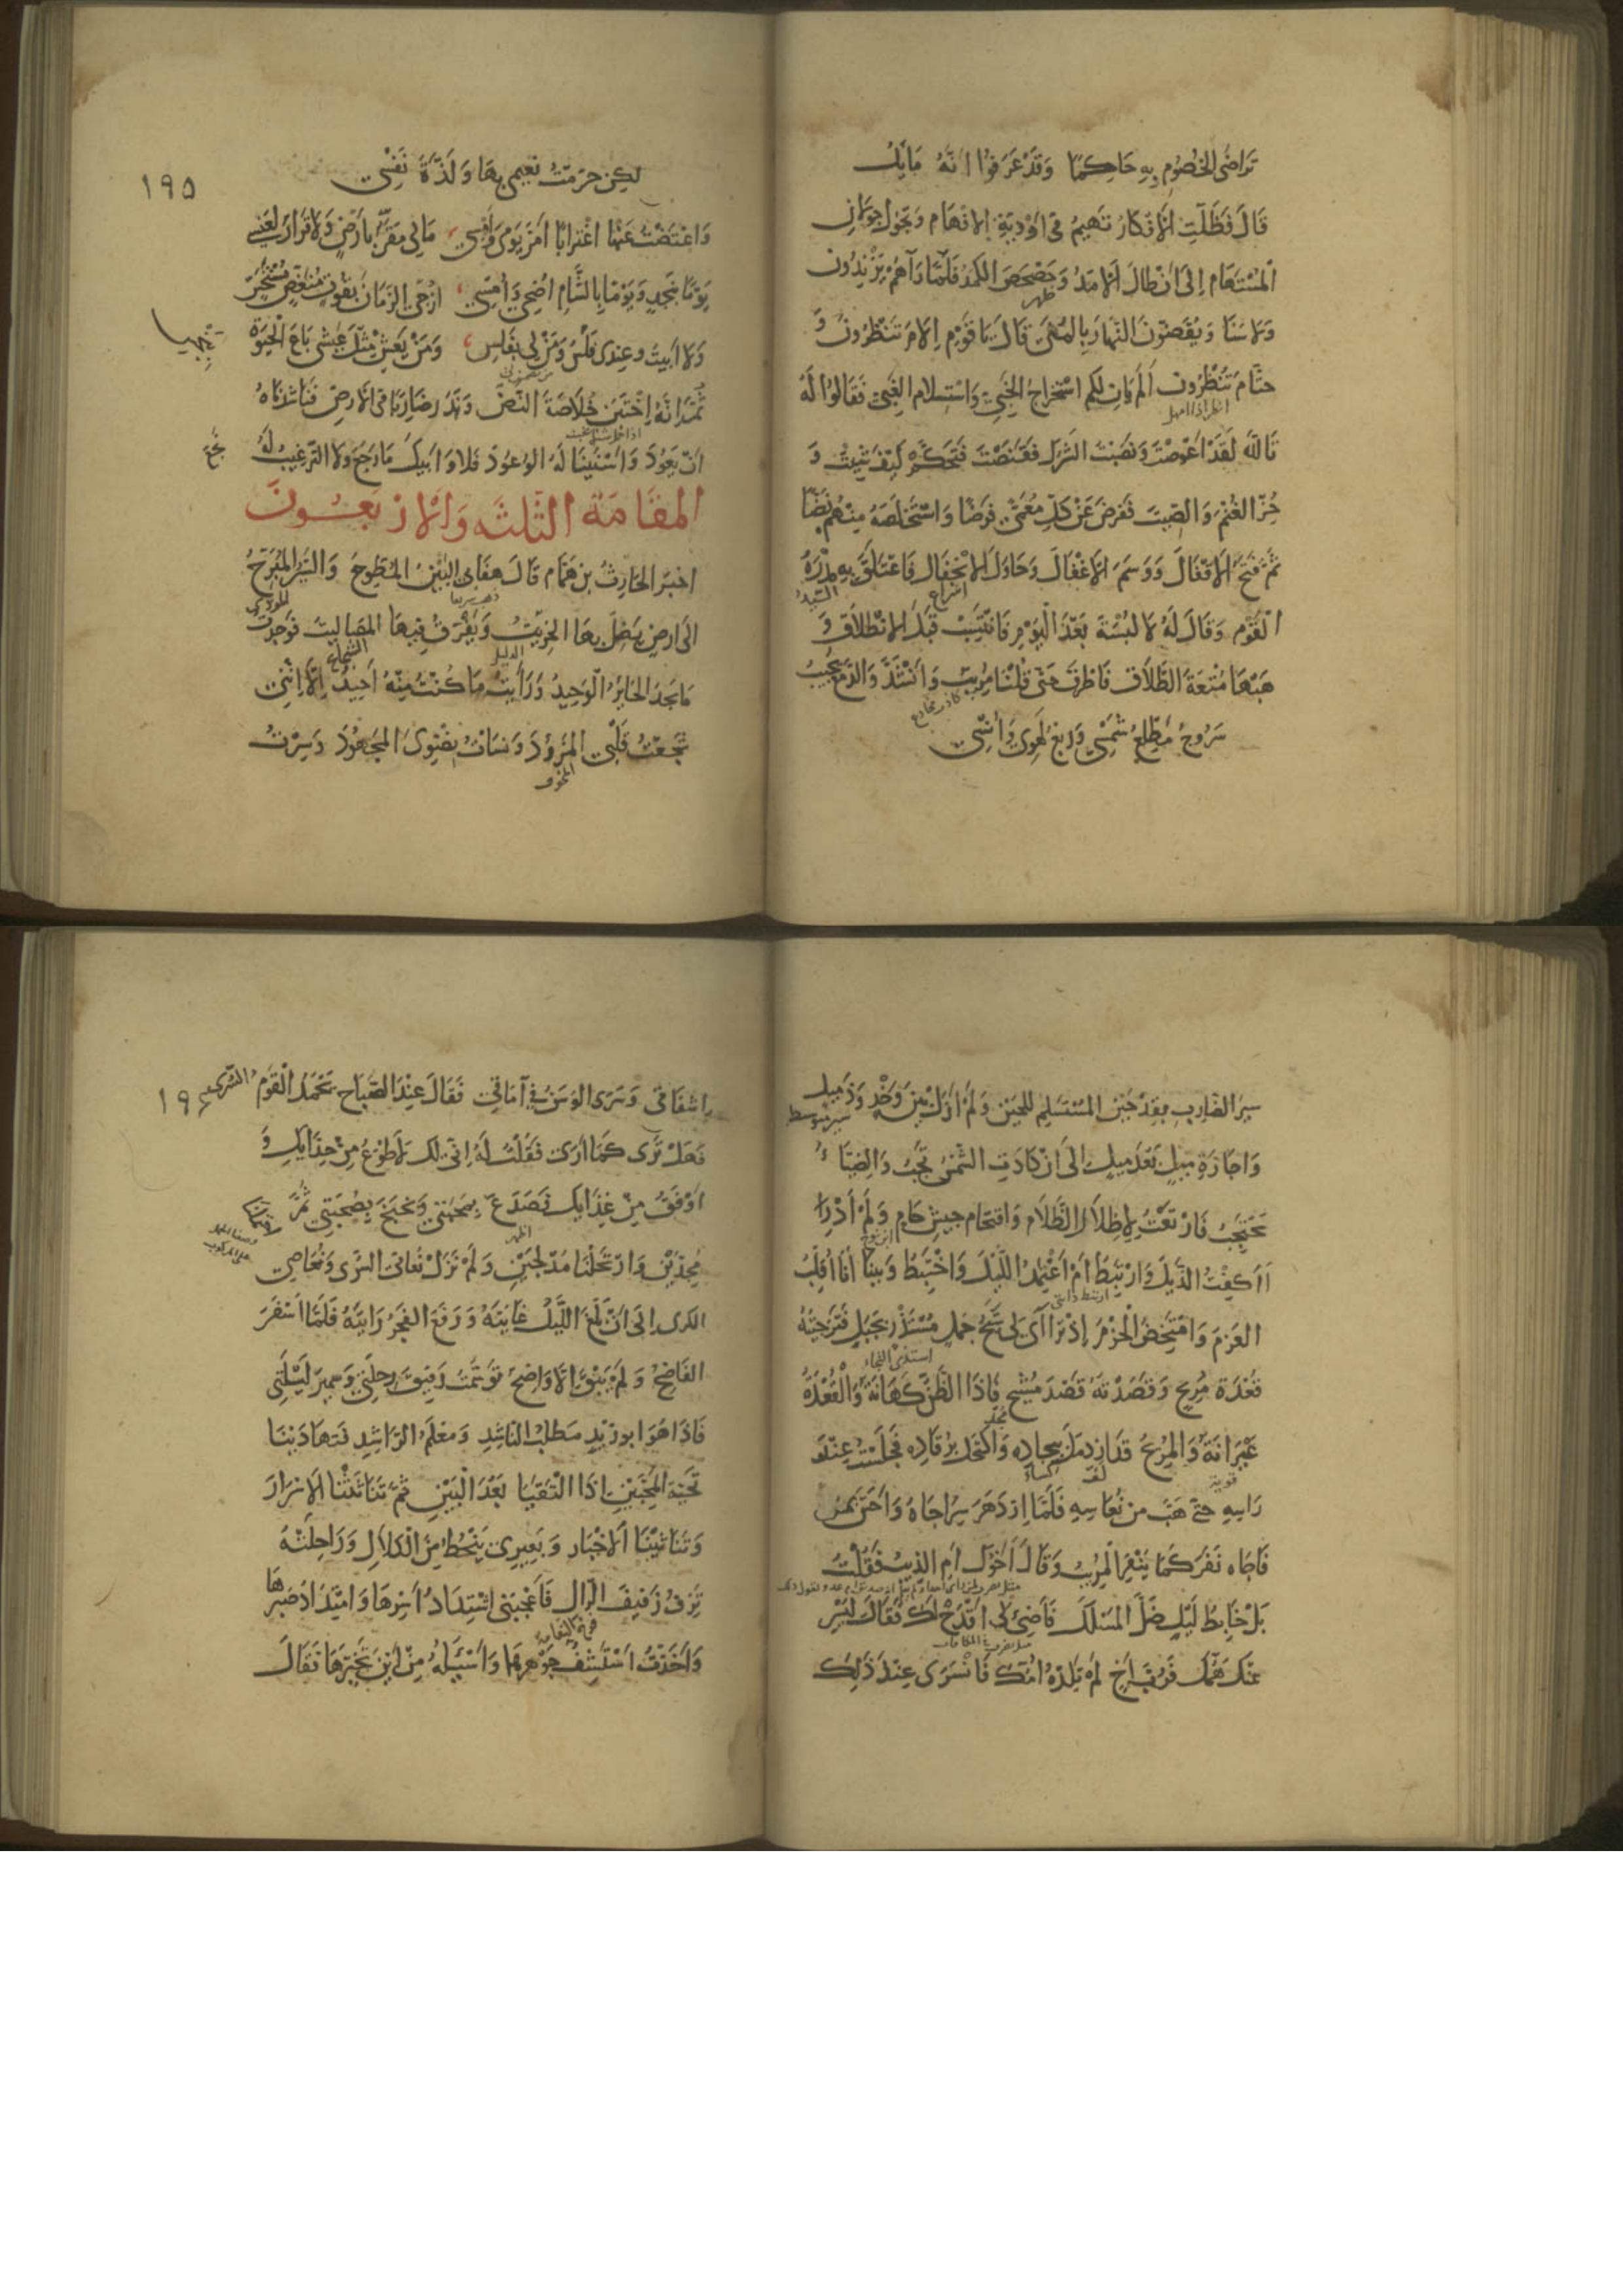 تَرَاضَى الخُصُومِ بِهِ حَاكِمًا وَقَدْ عَرَفُوا انَّهُ مَايِلُ
قَالَ فَظَلَّتِ الأَفْكَارُ تَهِيمُ فِى اَوْدِيَةِ الاَفْهَام وَتَجُولُ جَوَلَانَ
اَلْمُسْتَهَامِ اِلَى اَنْ طَالَ اَلْاَمَدُ وَحَصْحَصَ الكَمَدُ فَلَمَّا رَآهُمْ يَزْنِدُونَ
ظهر
وَلَا سَنَا وَيُقَضّونَ النَّهَارَ بِالمُنَى قَالَ يَا قَوْمِ اِلَامَ تَنْظُرُونَ وَ
حَتَّامَ تُنْظَرُونَ اَلَمْ يَانِ لَكُم اسْتِخْرَاجُ الخَبِىِّ وَاسْتِسْلَامُ الغَبِىِّ فَقَالُوا لَهُ
تَاللّٰهِ لَقَدْ اَعْوَصْتَ وَنَصَبْتَ الشَرَكَ فَقَنَصْتَ فَتَحَكَّمْ كَيْفَ شِيتَ وَ
حُزِ الغُنْمَ وَالصِّيتَ فَفَرَضَ عَنْ كُلِّ مُعَمًّى فَرْضًا وَاسْتَخْلَصَهُ مِنْهُمْ نَضًّا
ثُمَّ فَتَحَ الاَقْفَالَ وَوَسَمَ الاَغْفَالَ وَحَاوَلَ الاِنْجِفَالَ فَاعْتَلَقَ بِهِ مِدْرَهُ
اسراع
السيد
الْقَوْمِ وَقَالَ لَهُ لَا لُبْسَةَ بَعْدَ الْيَوْمِ فَانْتَسِبْ قَبْلَ الاِنْطِلَاقِ وَ
هَبْهَا مُتْعَةَ الطَّلَاقِ فَاطْرَقَ حَتَّى قُلْنَا مُرِيبٌ وَانْشَدَ وَالدَّمْعُ مُجِيبٌ
سَرُوجُ مَطْلِعُ شَمْسِى وَرَبْعُ لَهْوِى وَاُنْسِى
لكِنْ حُرِمْتُ نَعِيمِى بِهَا وَلَذَّةَ نَفْسِى
١٩٥
وَاعْتَضْتُ عَنْهَا اغْتِرَابًا اَمَرَّ يَوْمِى وَاَمْسِى مَا لِى مَقَرٌّ بِاَرْضٍ وَلَا قَرَارٌ لِعَنْسِى
يَوْمًا بِنَجْدٍ وَيَوْمًا بِالشَّامِ اُضْحِى وَاُمْسِى اُزْجِى الزَمَانَ بِقُوتٍ مُنَغَّصٍ مُسْتَخَسّ
وَلَا اَبِيتُ وعِنْدِى فَلْسٌ وَمَنْ لِى بِفَلْسِ وَمَنْ يَعِشْ مِثْلَ عَيْشِى بَاعَ الْحَيٰوةَ
بِبَخْسِ
ثُمَّ اِنَّهُ اخْتَبَنَ خُلَاصَةَ النَّضِّ وَنَدَرَ ضَارِبًا فِى الاَرْضِ فَنَاشَدْنَاهُ
اَنْ يَعُودَ وَاَسْنَيْنَا لَهُ الوُعُودَ فَلَا وَابِيكَ مَا رَجَعَ وَلَا التَرْغِيبُ لَهُ
نَجَعَ
المقَامَة الثَّلثَه وَالاَرْبَعُونَ
اخبَرَ الحَارِثُ بن هَمَّام قَالَ هَفَا بِى البَيْنُ المُطَوِّحُ وَالسَّيْرُ المُبَرِّحُ
المودى
اِلَى اَرضٍ يَضِلُّ بِهَا الخِرِّيتُ وَيَفْرَقُ فِيهَا المَصَالِيتُ فَوَجَدتُ
الدليل
الشجاع
مَا يَجِدُ الحَايِرُ الوَحِيدُ وَرَأَيْتُ مَا كُنْتُ مِنْهُ اَحِيدُ اِلَّا اَنِّى
شَجَّعْتُ قَلْبِى المَزْؤُدَ وَنَسَاتُ نِضْوِى المَجْهُودَ وَسِرْتُ
المخوف
سَيرَ الضَارِبِ بِقِدْحَيْنِ المُسْتَسْلِمِ لِلْحَيْنِ وَلَمْ اَزَلْ بَيْنَ وَخْدٍ وَذَمِيلٍ
سير متوسط
وَاجَازَةِ مِيلٍ بَعْدَ مِيلٍ اِلَى اَنْ كَادَتِ الشَّمْسُ تَجِبُ وَالضِيَاءُ
يَحْتَجِبُ فَارْتَعْتُ لِاِظْلَالِ الظَّلَامِ وَاقْتِحَامِ جَيْشِ حَامٍ وَلَمْ اَدْرِ
ابن نوح
أَاَكْفِتُ الذَيْلَ وَارْتَبِطُ اَمْ اَعْتَمِدُ اللَّيْلَ وَاخْتَبِطُ وَبَيْنَا اَنَا اُقَلِّبُ
العَزْمَ وَامْتَخِضُ الْحَزْمَ اِذْ تَرَاآى لِى شَبَحُ جَمَلٍ مُسْتَذْرٍ بِجَبَلٍ فَتَرَجَّيْتُهُ
قُعْدَةَ مُرِيحٍ وَقَصَدْتُهُ قَصْدَ مُشِيحٍ فَاذَا الظَّنُّ كَهَانَةٌ وَالْقُعْدَةُ
مجد
عَيْرَانَةٌ وَالمُرِيحُ قَدِ ازْدَمَلَ بِبِجَادِهِ وَاكْتَحَلَ بِرُقَادِهِ فَجَلَسْتُ عِنْدَ
قوية
لف
كساء
رَاسِهِ حَتَّى هَبَّ مِن نُعَاسِهِ فَلَمَّا اِزْدَهَرَ سِرَاجَاهُ وَاَحَسَّ بِمَنْ
فَاجَاه نَفَرَ كَمَا يَنْفِرُ الْمُرِيبُ وَقَالَ اَخُوكَ اَمِ الذِيبُ فَقُلْتُ
بَلْ خَابِطُ لَيْلٍ ضَلَّ المَسْلَكَ فَاَضِئْ لِى اَقْدَحْ لَكَ فَقَالَ لِيَسْرِ
عَنْكَ هَمُّكَ فَرُبَّ اَخٍ لَمْ تَلِدْهُ اُمُّكَ فَانْسَرَى عِنْدَ ذٰلِكَ
اِشْفَاقِى وَسَرَى الوَسَنُ فِى آمَاقِى فَقَالَ عِنْدَ الصَّبَاحِ يَحْمَدُ الْقَوْمُ السُّرَى
١٩٦
فَهَلْ تَرَى كَمَا اَرَى فَقُلْتُ لَهُ اِنِّى لَكَ لَاَطْوَعُ مِنْ حِذَايِكَ وَ
اَوْفَقُ مِنْ غِذَايِكَ فَصَدَعَ بِمَحَبَّتِى وَبَخْبَخَ بِصُحْبَتِى ثُمَّ
اظهر
مُجِدَّيْنِ وَارْتَحَلْنَا مُدْلِجَيْنِ وَلَمْ نَزَلْ نُعَانِى السُّرَى وَنُعَاصِى
الكَرَى اِلَى اَنْ بَلَغَ اللَّيْلُ غَايَتَهُ وَرَفَعَ الفَجْرُ رَايَتَهُ فَلَمَّا اَسْفَرَ
الفَاضِحُ وَلَمْ يَبْقَ اِلَّا وَاضِحٌ تَوَسَّمْتُ رَفِيقَ رِحْلَتِى وَسَمِيرَ لَيْلَتِى
فَاِذَا هُوَ ابو زَيْدٍ مَطْلَبُ النَاشِدِ وَمَعْلَمُ الرَّاشِدِ فَتَهَادَيْنَا
تَحِيَّةَ المُحِبَّيْنِ اِذَا الْتَقَيَا بَعْدَ الْبَيْنِ ثُمَّ تَبَاثَثْنَا الاَسْرَارَ
وَتَنَاثَيْنَا الاَخْبَارَ وَبَعِيرِى يَنْحِطُ مِنَ الكَلَالِ وَرَاحِلَتُهُ
تَزِفُّ زَفِيفَ الرَّالِ فَاَعْجَبَنِى اشْتِدَادُ اَسْرِهَا وَامْتِدَادُ صَبْرِهَا
فرخ النعامة
وَاَخَذْتُ اَسْتَشِفُّ جَوْهَرَهَا وَاَسْئَلُهُ مِنْ اَيْنَ تَخَيَّرَهَا فَقَالَ